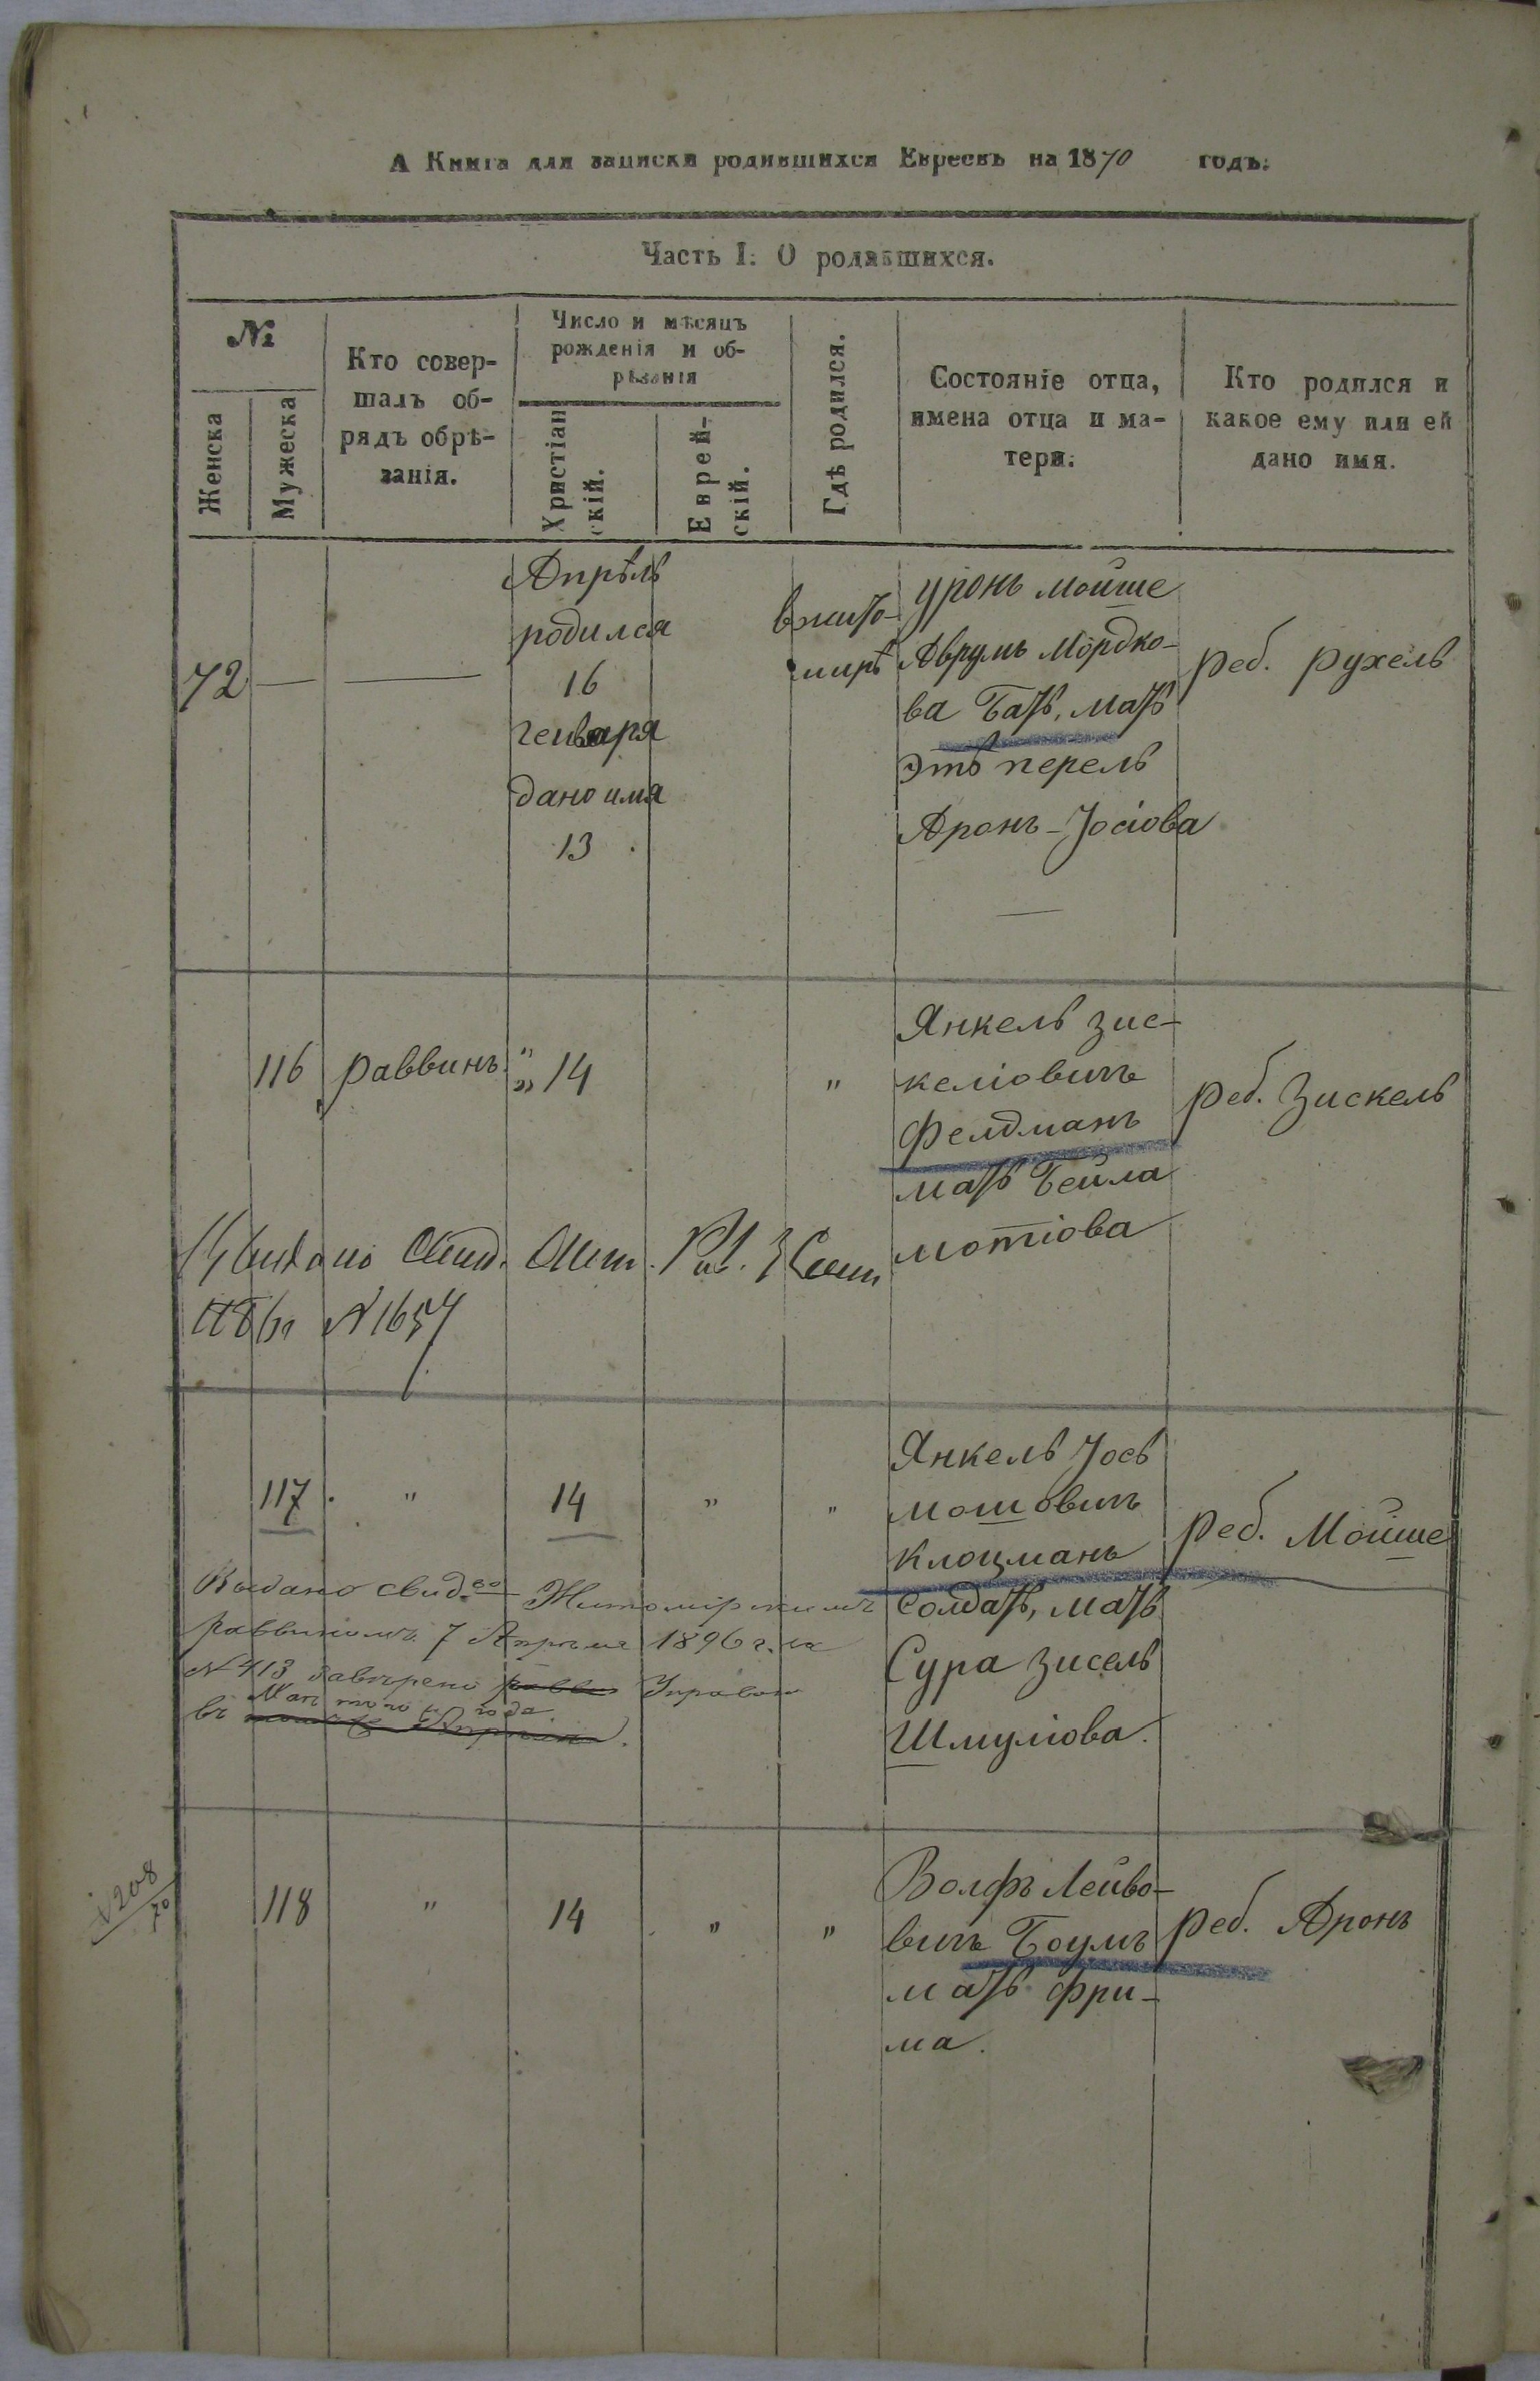 А Книга для записки родившихся Евреевъ на 1870 годъ.
Часть I. О родившихся.
№
Женска
Мужеска
Кто совер-
шалъ об-
рядъ обрѣ-
занія.
Число и мѣсяцъ
рожденія и об-
рѣзанія
Христіан
скій.
Еврей-
скій.
Гдѣ родился.
Состояніе отца,
имена отца и ма-
тери.
Кто родился и
какое ему или ей
дано имя.
72
Апрѣль
родился
16
генваря
дано имя
13
вжито-
мирѣ
Мойше
Аврумъ Мордко-
ва Бать, мать
перель
Аронъ-Јосіова
реб. рухель
116 раввинъ " 14 "
Янкель зис-
келіовичъ
Фелдманъ
мать Бейла
мотіова
реб. Зискель
№ 1654
117 " 14 " "
Янкель Јось
мошовичъ
Клоцманъ
солдать, мать
Сура зисель
Шмуліова.
реб. Мойше
Выдано свид.во Житомірскимъ
раввиномъ 7 Апрѣля 1896 г. за
№ 413
того года
въ
208
70
118 " 14 " "
Волфъ Лейбо-
вичъ Боумъ
мать фри-
ма.
реб. Аронъ